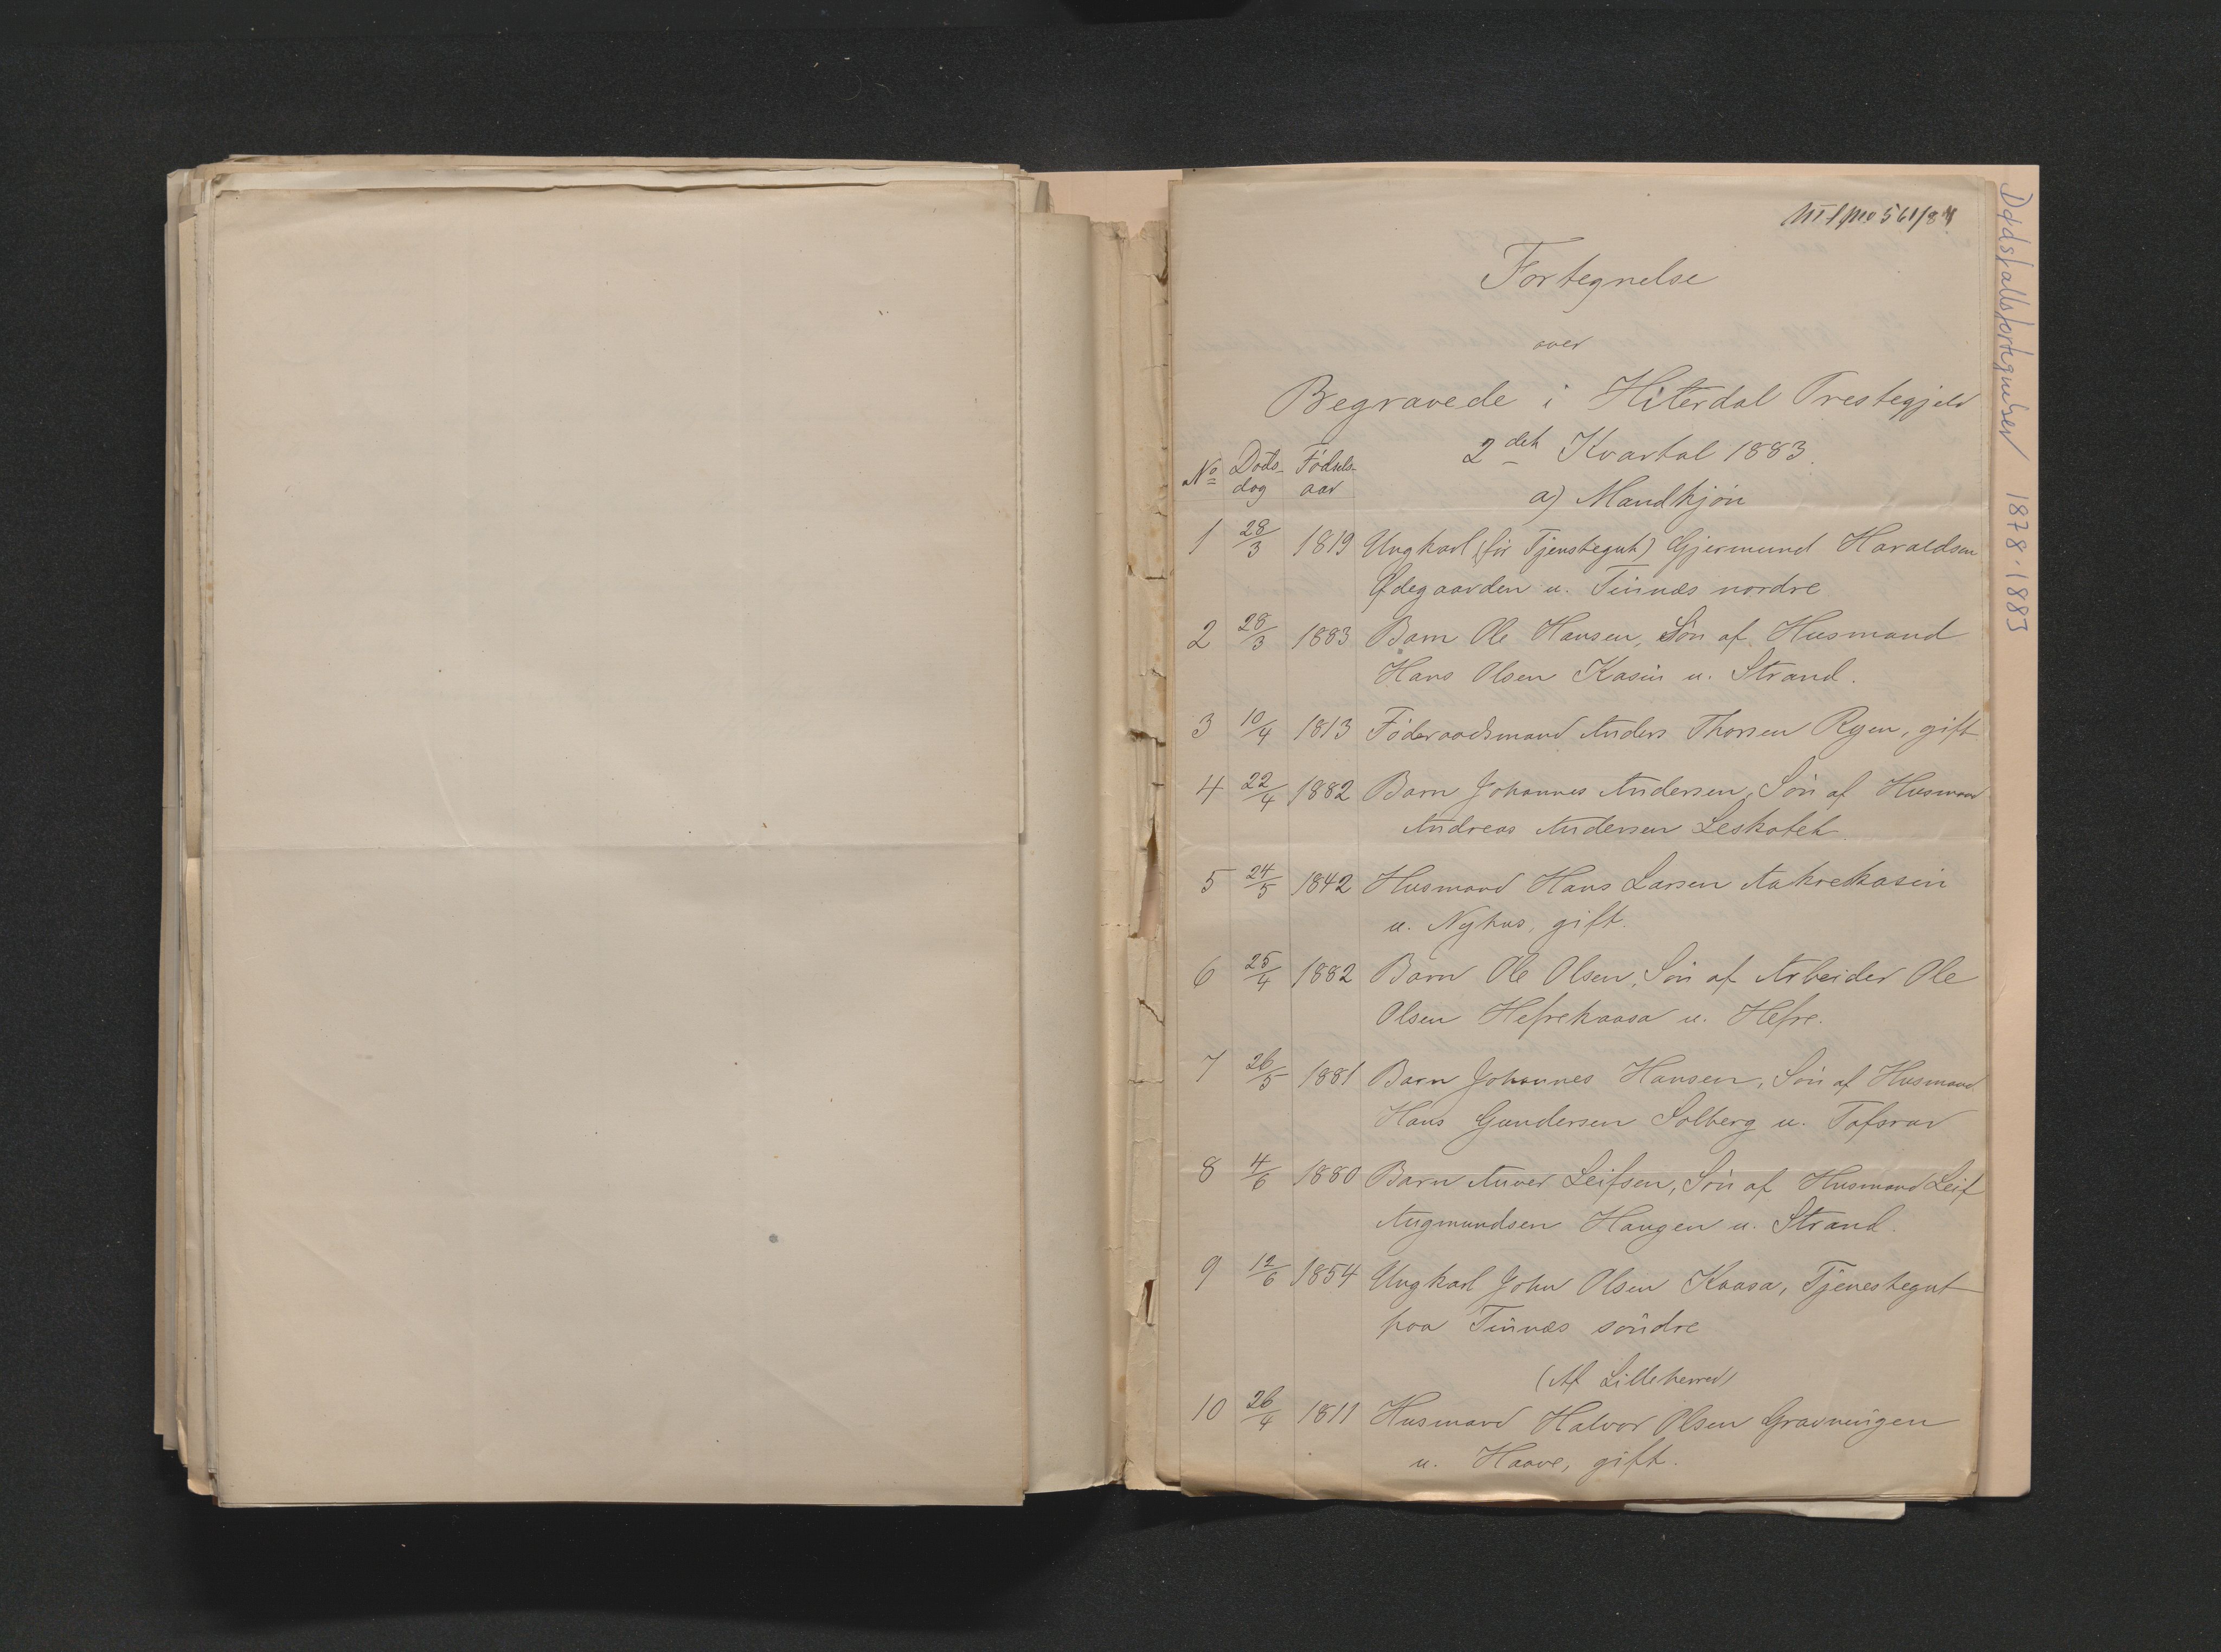 Fortegnelse
over
Begravede i Hiterdal Prestegjeld
2det Kvartal 1883.
No Døds- Fødsels-
dag aar
a) Mandkjøn
1 28/3 1819 Ungkarl (før Tjenstegut) Gjermund Haraldsen
Ødegaarden u. Tinnæs nordre
2 28/3 1883 Barn Ole Hansen, Søn af Husmand
Hans Olsen Kasin u. Strand.
3 10/4 1813 Føderaadsmand Anders Thorsen Ryen, gift
4 22/4 1882 Barn Johannes Andersen, Søn af Husmand
Andreas Andersen Leskotek.
5 24/5 1842 Husmand Hans Larsen Aakrekasin
u. Nyhus, gift.
6 25/4 1882 Barn Ole Olsen, Søn af Arbeider Ole
Olsen Hefrekaasa u. Hefre.
7 26/5 1881 Barn Johannes Hansen, Søn af Husmand
Hans Gundersen Solberg u. Tafsrav
8 4/6 1880 Barn Anver Leifsen, Søn af Husmand Leif
Augmundsen Haugen u. Strand.
9 12/6 1854 Ungkarl John Olsen Kaasa, Tjenestegut
paa Tinnæs søndre
(Af Lilleherred)
10 26/4 1811 Husmand Halvor Olsen Gravningen
u. Haave, gift.
Dødsfallsfortegnelser 1878-1883